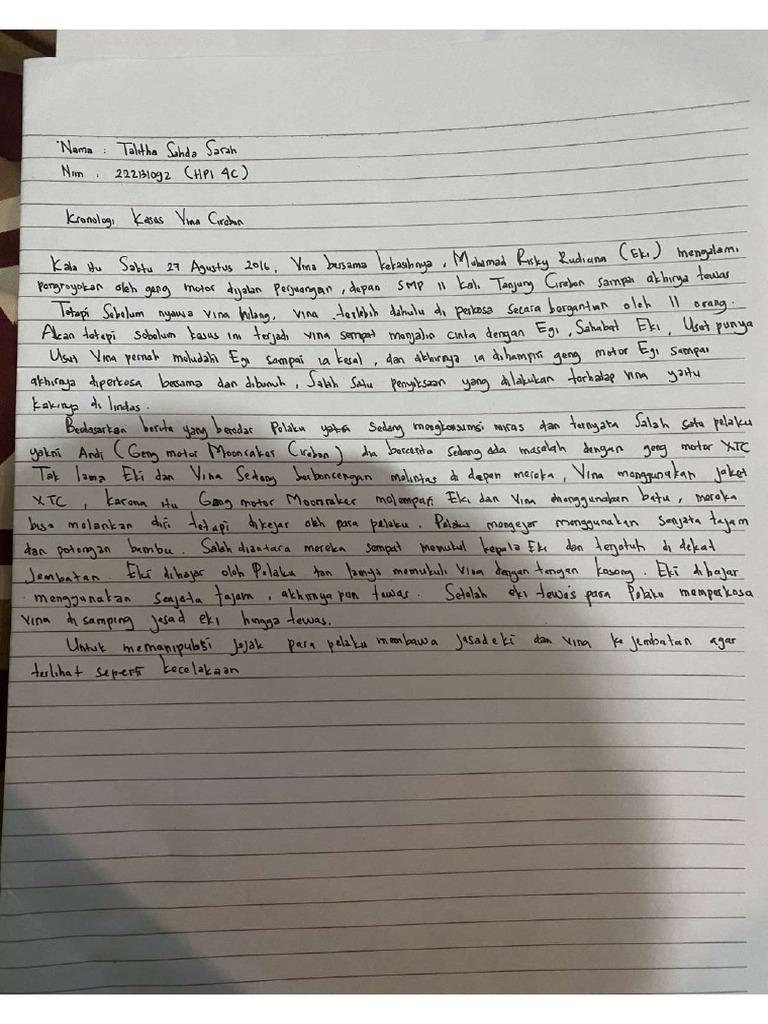 Nama : Talitha Sahda Sarah
Nim : 222131092 (HPI 4C)
Kronologi Kasus Vina Cirebon
Kala itu Sabtu 27 Agustus 2016, Vina bersama kekasihnya, Muhamad Risky Rudiana (Eki) mengalami
pengroyokan oleh geng motor dijalan Perjuangan, depan SMP 11 Kali Tanjung Cirebon sampai akhirya tewas
Tetapi Sebelum nyawa vina hilang, vina terlebih dahulu di perkosa secara bergantian oleh 11 orang.
Akan tetapi sebelum kasus ini terjadi vina sempat menjalin cinta dengan Egi, Sahabat Eki, Uset punya
Uset Vina pernah meludahi Egi sampai ia kesal, dan akhirnya ia dihampiri geng motor Egi sampai
akhirnya diperkosa bersama dan dibunuh, Salah satu penyiksaan yang dilakukan terhadap vina yaitu
kakinya di lindas.
Bedasarkan berita yang beredar Pelaku yakni Sedang mengkonsumsi miras dan ternyata Salah satu pelaku
yakni Andi (Geng motor Moonraker Cirebon) dia bercerita sedang ada masalah dengan geng motor XTC
Tak lama Eki dan Vina Sedang berboncengan melintas di depan mereka, Vina menggunakan jaket
XTC, karena itu Geng motor Moonraker melempari Eki dan Vina menggunakan batu, mereka
bisa melarikan diri tetapi dikejar oleh para pelaku. Pelaku mengejar menggunakan senjata tajam
dan potongan bambu. Salah diantara mereka sempat memukul kepala Eki dan terjatuh di dekat
Jembatan. Eki dihajar oleh Pelaku dan lainya memukuli Vina dengan tangan kosong. Eki dihajar
menggunakan senjata tajam, akhirnya pun tewas. Setelah eki tewas para Pelaku memperkosa
vina di samping jasad eki hingga tewas.
Untuk memanipulasi jejak para pelaku membawa jasad eki dan vina ke jembatan agar
terlihat seperti kecelakaan